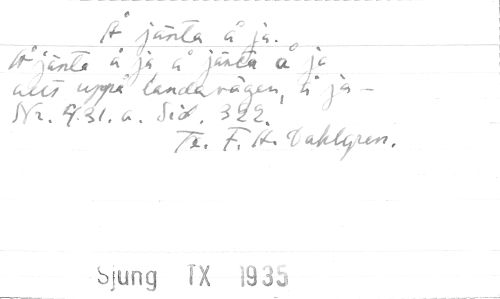 Å jänta å ja.
Å jänta å ja å jänta å ja
allt uppå landavägen, å ja –
Nr. 931. a. Sid. 322.
Tr. F. H. Dahlgren.
Sjung TX 1935